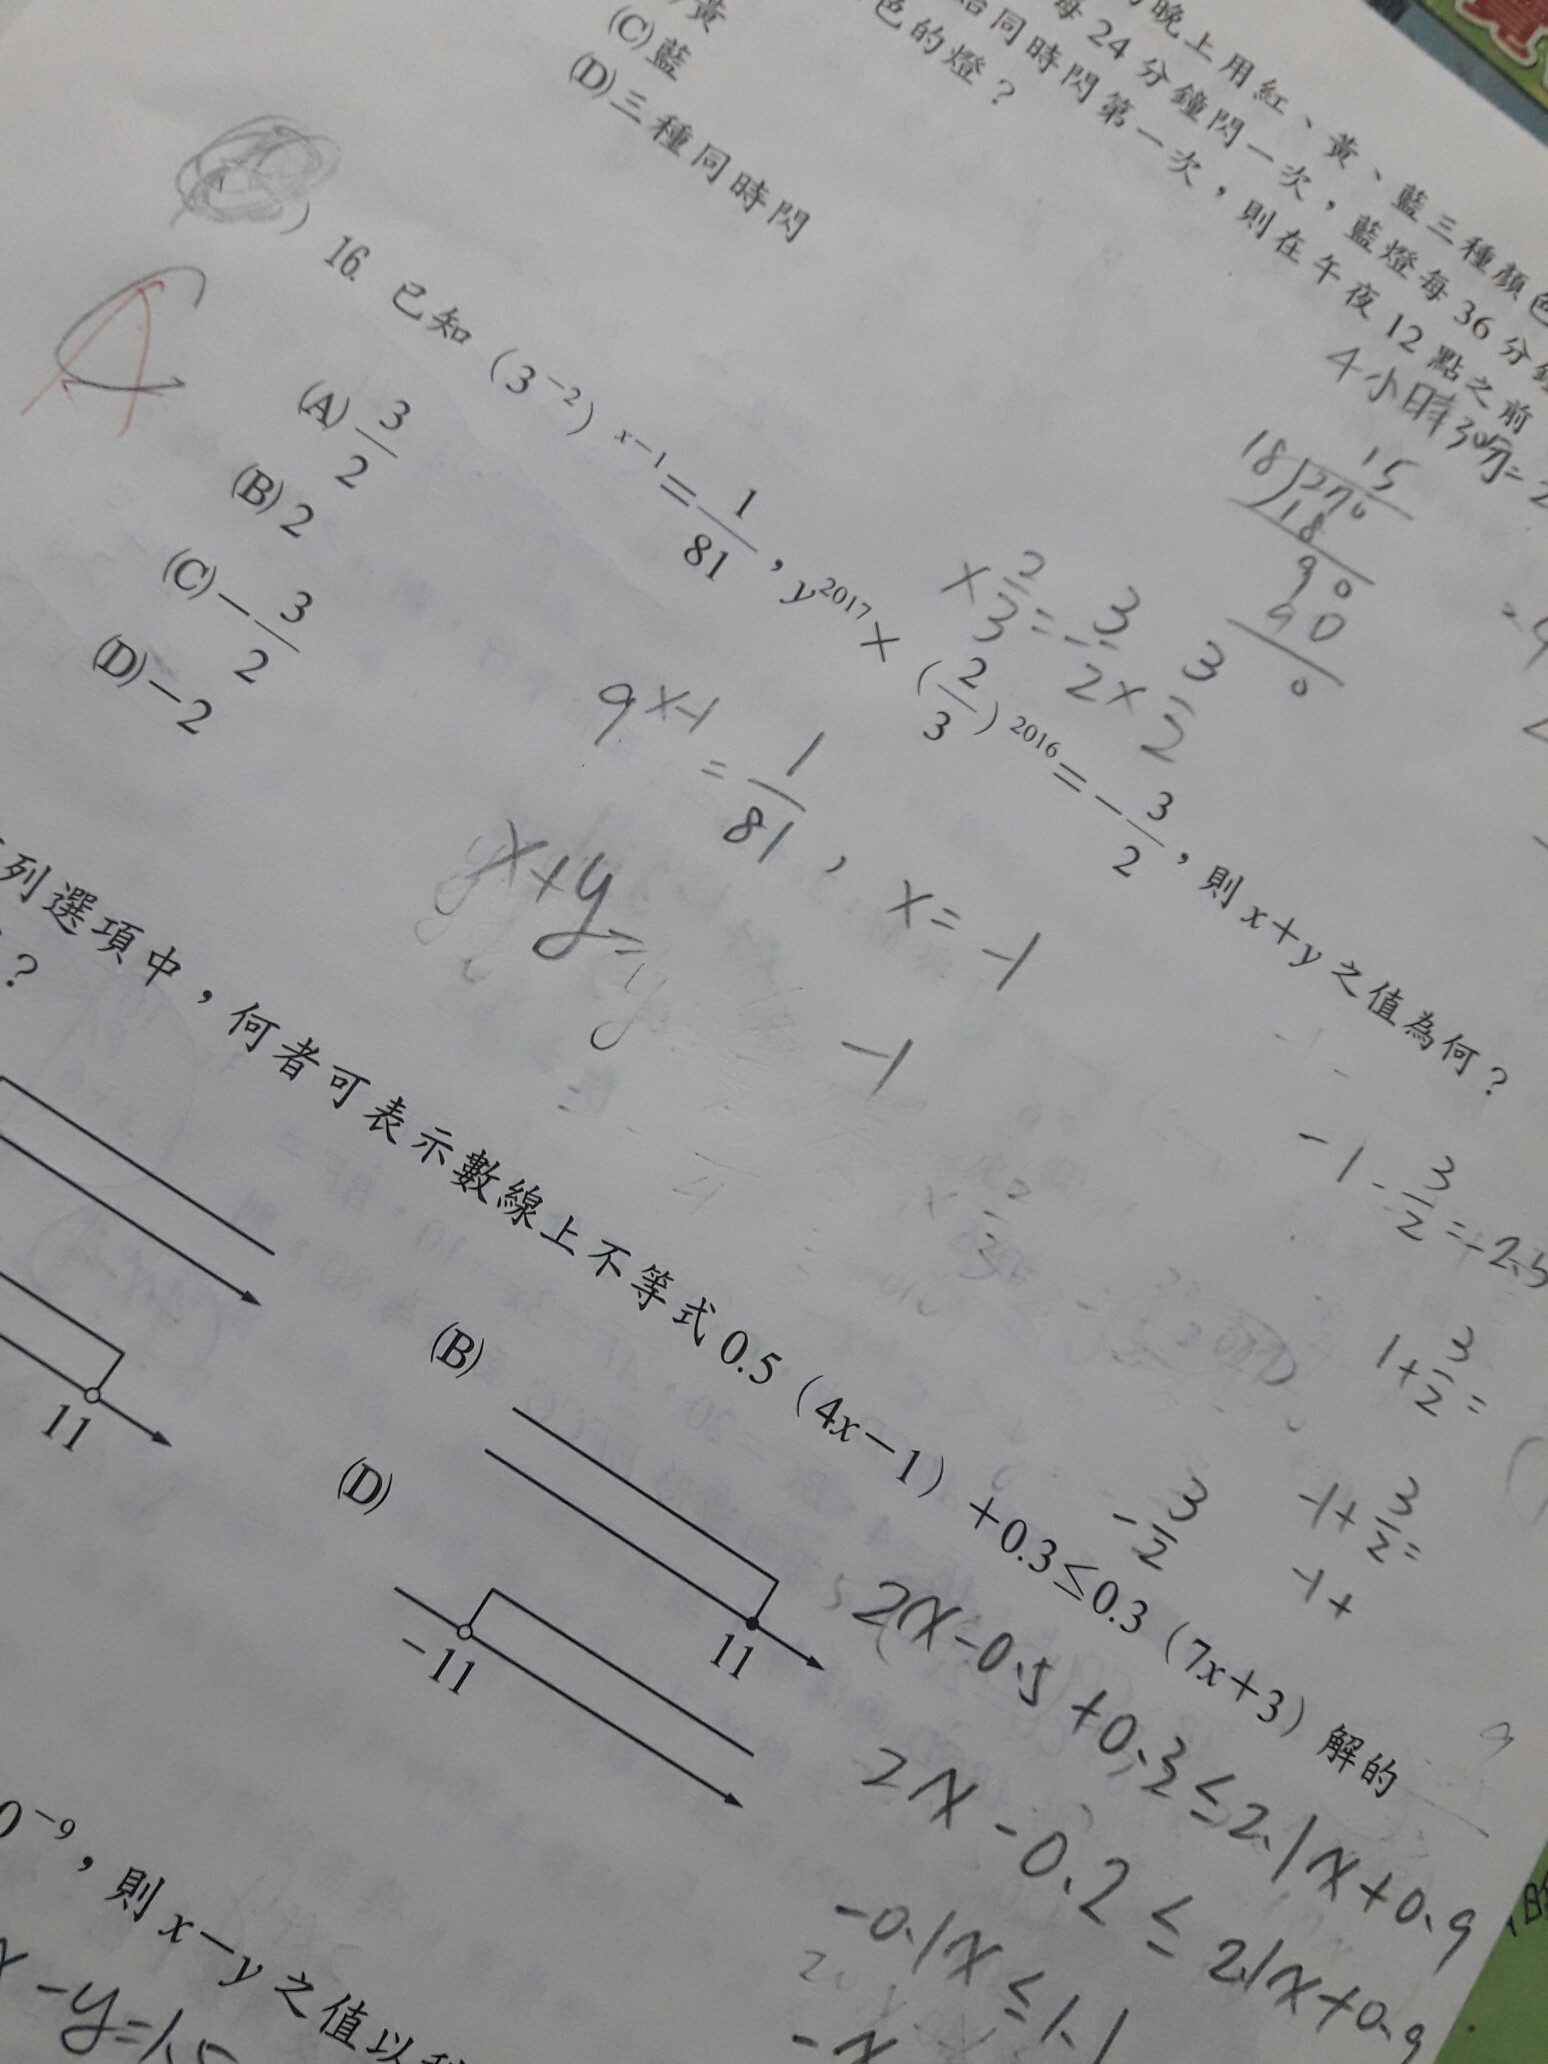 晚上用紅、黃、藍三種顏色
每24分鐘閃一次，藍燈每36分鐘
同時閃第一次，則在午夜12點之前
色的燈？
黃
(C)藍
(D)三種同時閃
4小時30分=
15
18 270
18
90
90
0
) 16. 已知 (3⁻²)ˣ⁻¹=1/81，y²⁰¹⁷×(2/3)²⁰¹⁶=-3/2，則x+y之值為何？
(A) 3/2
(B) 2
(C) -3/2
(D) -2
× 2/3 = -3/2 × 3/2
9ˣ⁻¹ = 1/81 , x = -1
x+y=
-1
-1-3/2=-2.5
1+3/2=
-1+3/2=
-1+
-3/2
列選項中，何者可表示數線上不等式0.5（4x-1）+0.3≤0.3（7x+3）解的
？
11
(B)
11
(D)
-11
2x-0.5+0.3≤2.1x+0.9
2x-0.2≤2.1x+0.9
-0.1x≤1.1
-x
0⁻⁹，則x-y之值以
x-y=1.5